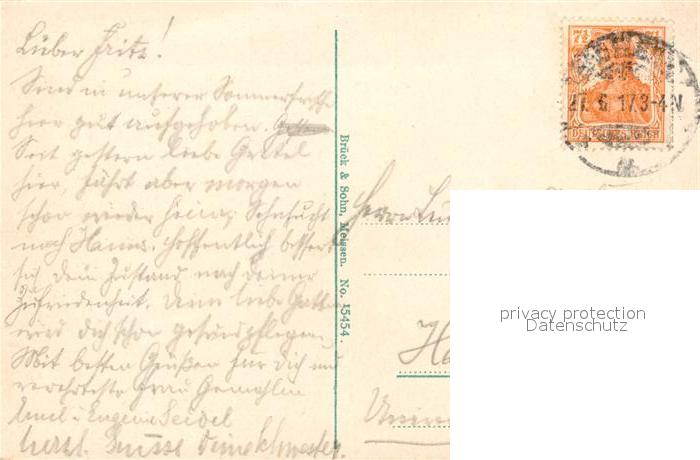 Lieber Fritz!
Sind in unserer Sommerfrische
hier gut aufgehoben.
Seit gestern liebe Gretel
hier, fährt aber morgen
schon wieder heim; Sehnsucht
nach Hanns. Hoffentlich bessert
sich Dein Zustand nach Deiner
Zufriedenheit. Deine liebe Gattin
wird Dich schon gesundpflegen.
Mit besten Grüßen für Dich und
verehrteste Frau Gemahlin
Emil u. Eugenie Seidel
herzl. Grüsse Deine Schwester.
Brück & Sohn, Meissen. No. 15454.
7½ 7½
DEUTSCHES REICH
27.6.17.3-4N
Herrn
privacy protection
Datenschutz